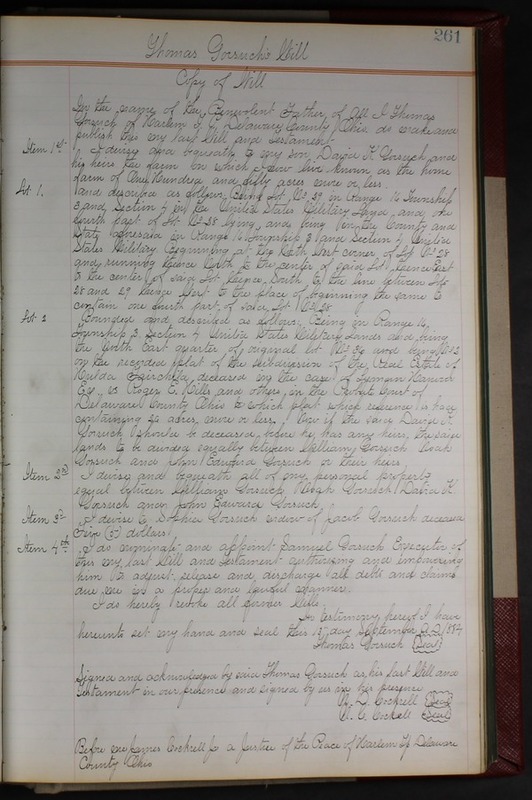 261
Thomas Gorsuch's Will
Copy of Will
In the name of the Benevolent Father of All I Thomas
Gorsuch of Harlem Delaware County Ohio do make and
publish this my last Will and Testament
Item 1st I devise and bequeath to my son David K Gorsuch and
his heirs the farm on which I now live known as the home
farm of One Hundred and fifty acres more or less
Lot 1. and described as follows being Lot No 29 in Range 16 Township
3 and Section 4 in the United States Military Land and the
fourth part of Lot No 28 lying and being in the County and
State aforesaid in Range 16 Township 3 and Section 4 United
States Military Beginning at the West corner of Lot No 28
and running thence North to the center of said Lot thence East
to the center of said Lot thence South to the line between Lots
28 and 29 thence West to the place of beginning the same to
contain one fourth part of said Lot No 28
Lot 2 Bounded and described as follows Being in Range 16
Township 3 Section 4 United States Military Lands and being
the East quarter of original lot No 30 and being No 3
on the recorded plat of the subdivision of the Real Estate of
Fairchild deceased in the case of Lyman
vs Roger E. Wills and others in the Court of
Delaware County Ohio to which plat which reference is here
containing acres more or less. Now if the said David K.
Gorsuch should be deceased before he has any heirs the said
lands to be divided equally between William Gorsuch Noah
Gorsuch and John Edward Gorsuch or their heirs
Item 2nd I devise and bequeath all of my personal property
equal between William Gorsuch Noah Gorsuch David K
Gorsuch and John Edward Gorsuch
Item 3d I devise to Sophia Gorsuch widow of Jacob Gorsuch deceased
Five (5) dollars
Item 4th I do nominate and appoint Samuel Gorsuch Executor of
this my last Will and Testament authorizing and empowering
him to adjust release and discharge all debts and claims
due me in a proper and lawful manner.
I do hereby revoke all former Wills
In testimony hereof I have
hereunto set my hand and seal this 15 day September A.D.
Thomas Gorsuch (Seal)
Signed and acknowledged by said Thomas Gorsuch as his last Will and
Testament in our presence and signed by us in his presence
Cockrell (Seal)
Cockrell (Seal)
Before me James Cockrell a Justice of the Peace of Harlem Tp Delaware
County Ohio